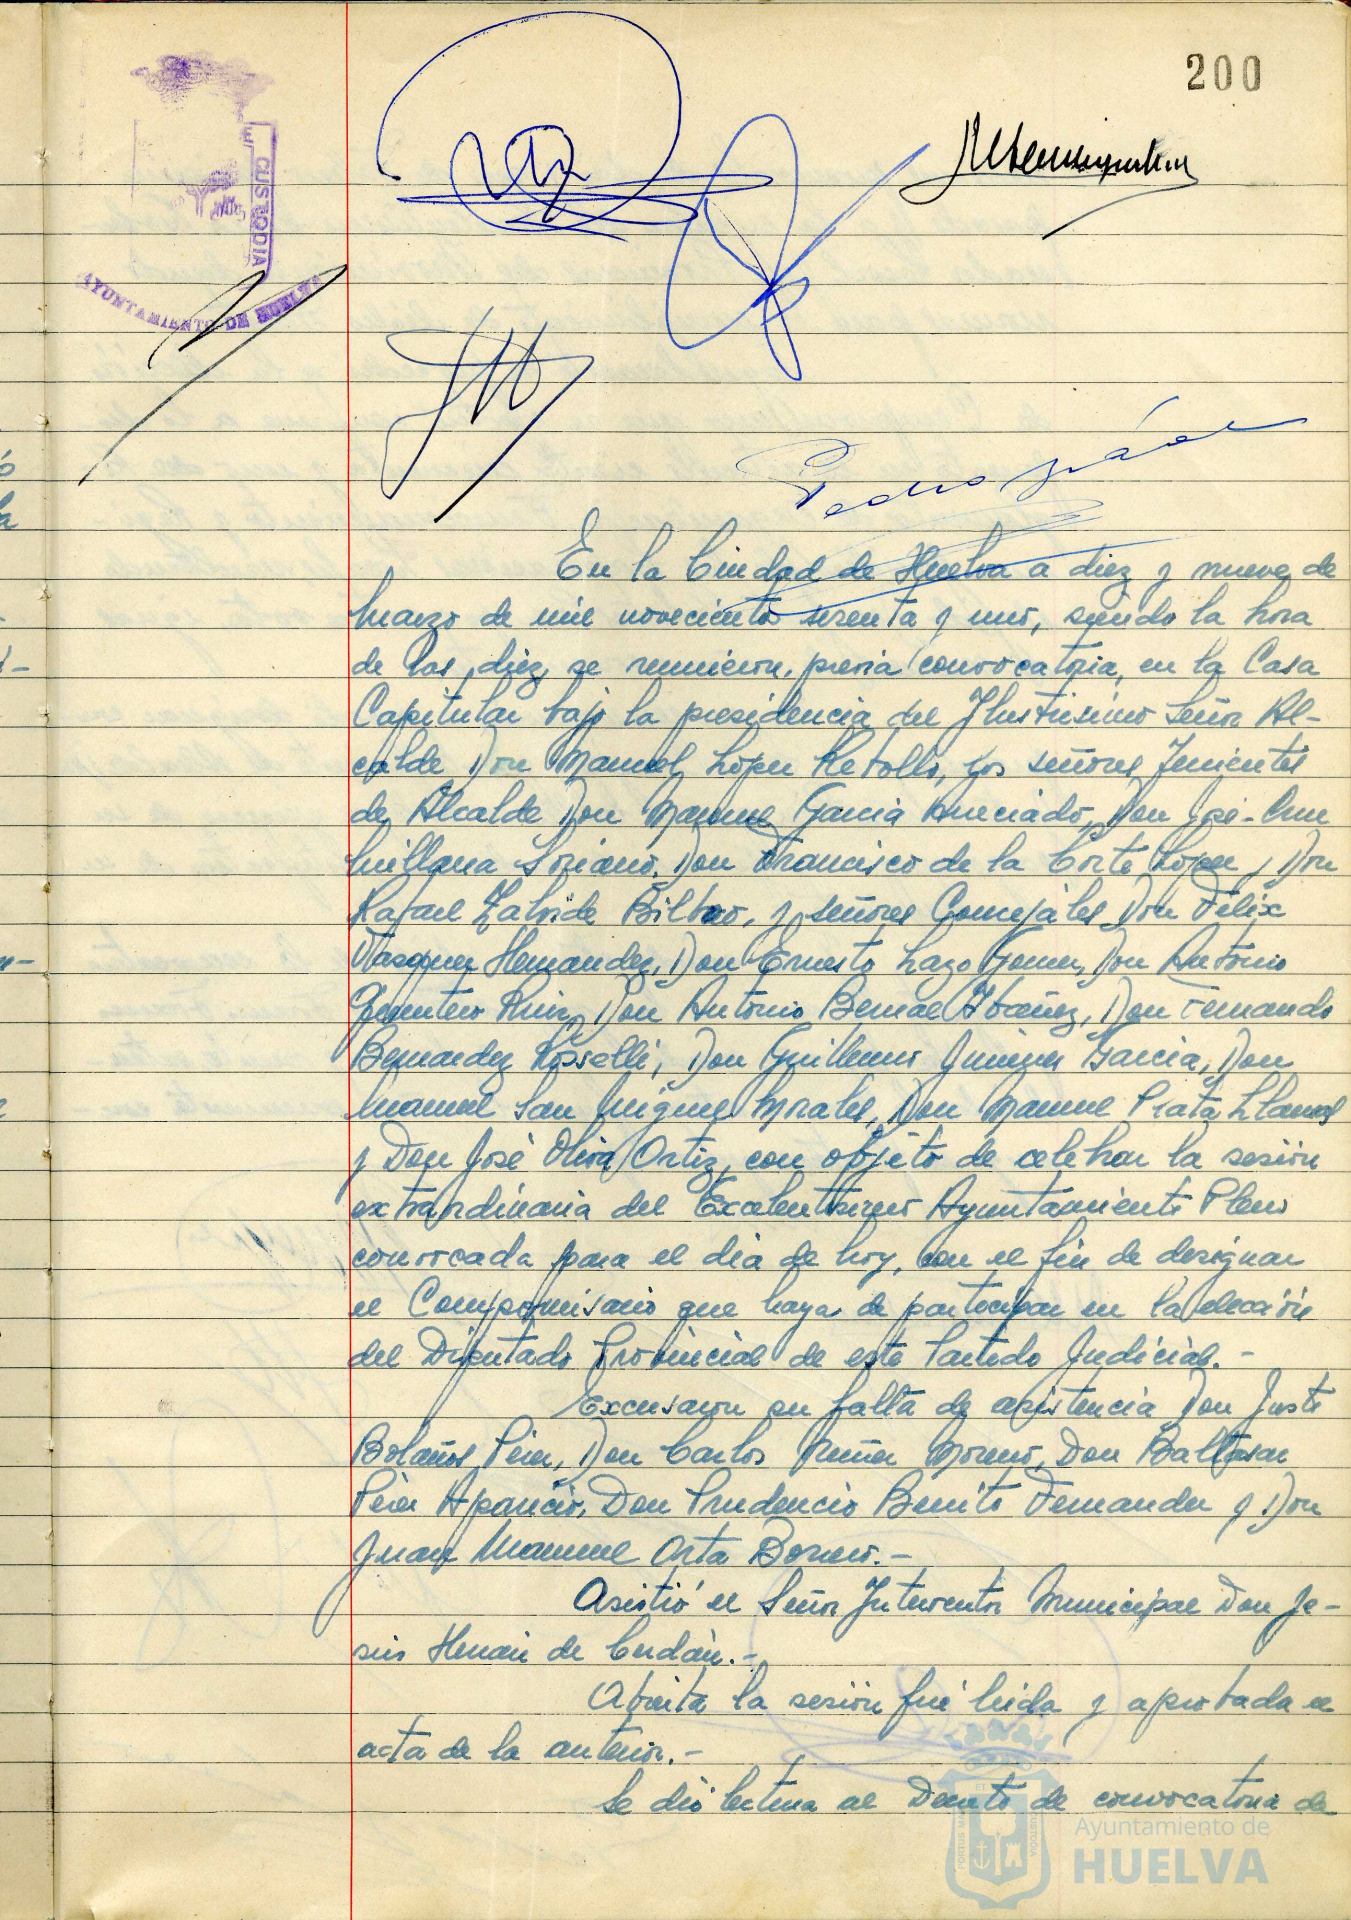 200
E CUSTODIA
AYUNTAMIENTO DE HUELVA
Pedro
En la Ciudad de Huelva a diez y nueve de
Marzo de mil novecientos sesenta y uno, siendo la hora
de las diez, se reunieron, previa convocatoria, en la Casa
Capitular bajo la presidencia del Ilustrisimo Señor Al-
calde Don Manuel Lopez Rebollo, los señores Tenientes
de Alcalde Don Manuel Garcia Aneciado, Don José-Cruz
Millana Soriano, Don Francisco de la Corte Lopez y Don
Rafael Zalvide Bilbao, y señores Concejales Don Félix
Vazquez Hernandez, Don Ernesto Lazo Gomez, Don Antonio
Quintero Ruiz, Don Antonio Bernal Ibáñez, Don Fernando
Bermudez Rosselli, Don Guillermo Jimenez Garcia, Don
Manuel San Miguel Morales, Don Manuel Prata Llamas
y Don José Oliva Ortiz, con objeto de celebrar la sesión
extraordinaria del Excelentisimo Ayuntamiento Pleno
convocada para el dia de hoy, con el fin de designar
el Compromisario que haya de participar en la elección
del Diputado Provincial de este Partido Judicial.-
Excusaron su falta de asistencia Don Justo
Bolaños Pérez, Don Carlos Nuñez Moreno, Don Baltasar
Pérez Aparicio, Don Prudencio Benito Fernandez y Don
Juan Manuel Orta Borrero.-
Asistió el Señor Interventor Municipal Don Je-
sús Hernán de Cerdán.-
Abierta la sesión fué leida y aprobada el
acta de la anterior.-
Se dió lectura al Decreto de convocatoria de
PORTUS MA ET CUSTODIA
Ayuntamiento de
HUELVA